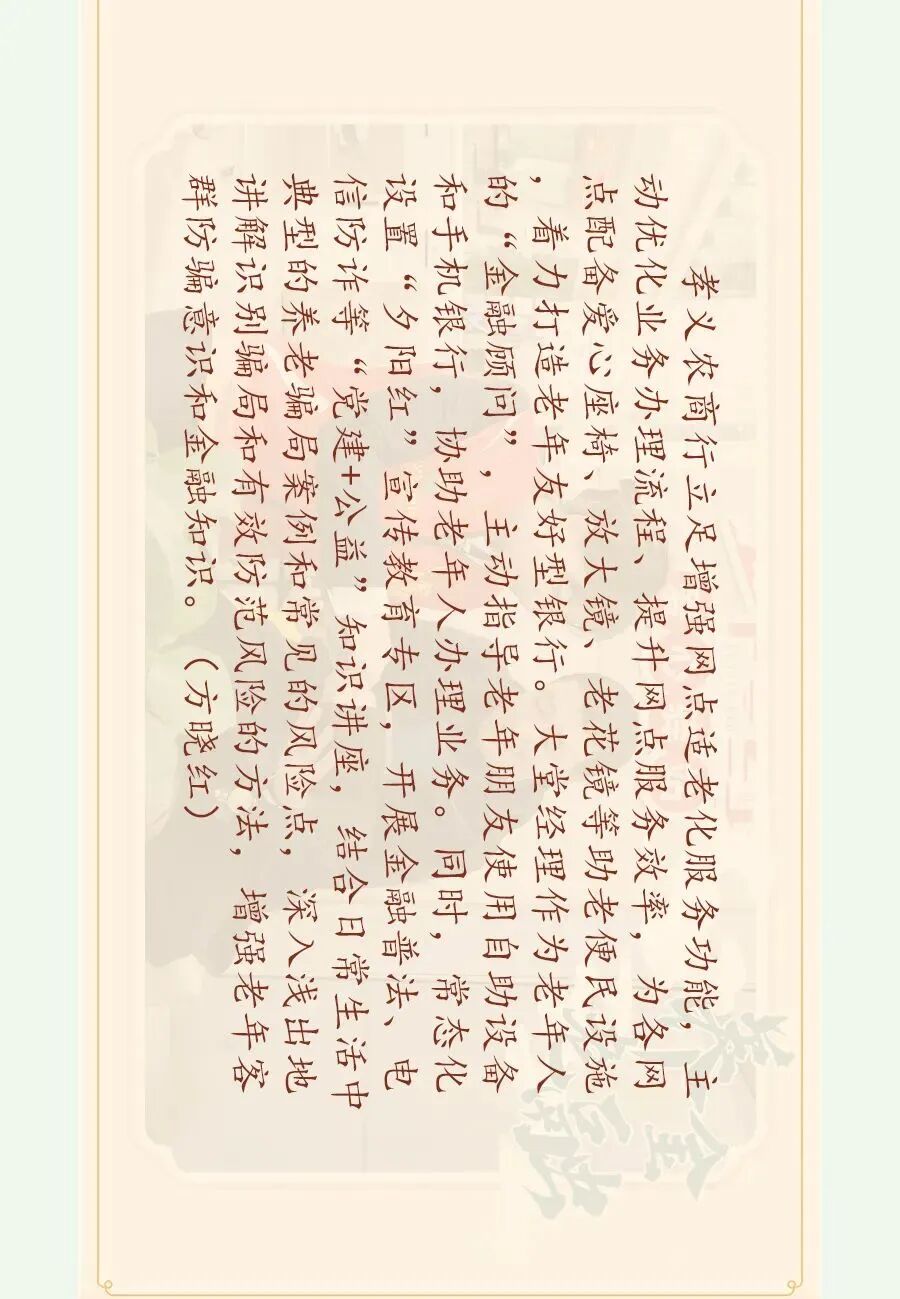 孝义农商行立足增强网点适老化服务功能，主
动优化业务办理流程、提升网点服务效率，为各网
点配备爱心座椅、放大镜、老花镜等助老便民设施
，着力打造老年友好型银行。大堂经理作为老年人
的“金融顾问”，主动指导老年朋友使用自助设备
和手机银行，协助老年人办理业务。同时，常态化
设置“夕阳红”宣传教育专区，开展金融普法、电
信防诈等“党建+公益”知识讲座，结合日常生活中
典型的养老骗局案例和常见的风险点，深入浅出地
讲解识别骗局和有效防范风险的方法，增强老年客
群防骗意识和金融知识。（方晓红）